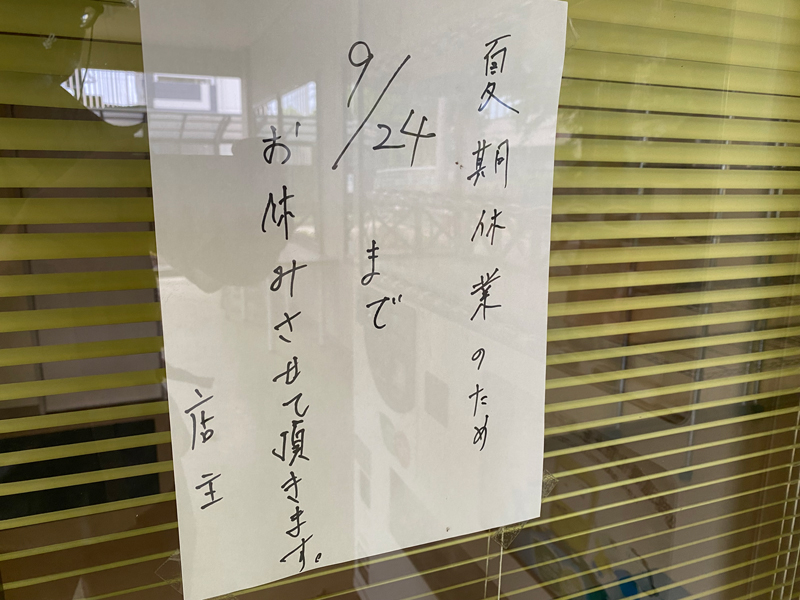 夏期休業のため
9/24まで
お休みさせて頂きます。
店主